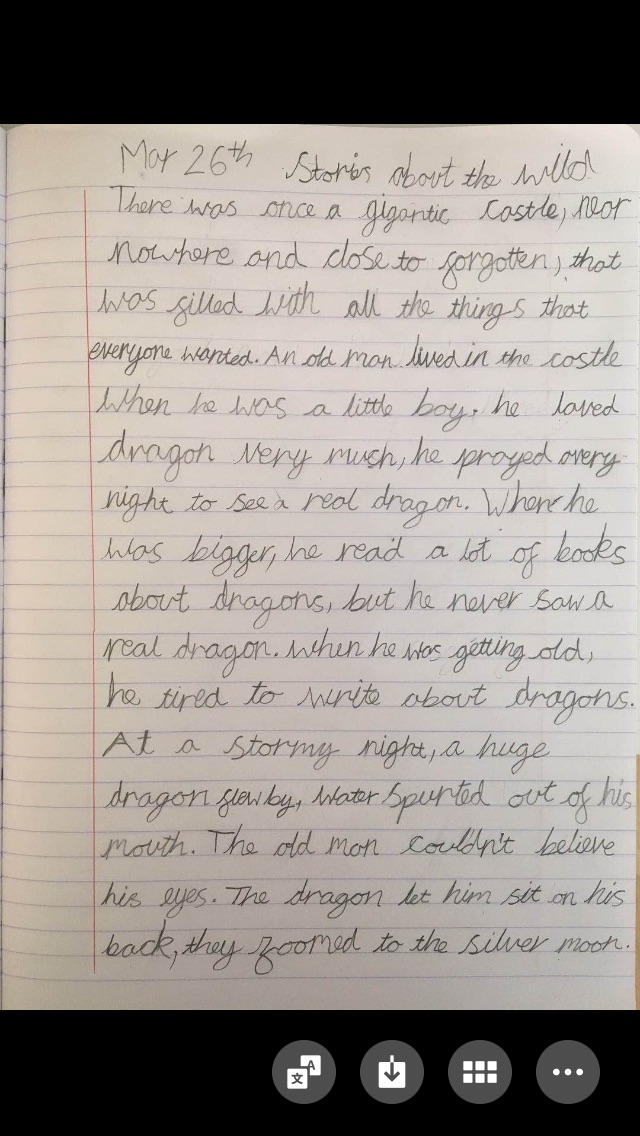 Mar 26th Stories about the wild
There was once a gigantic castle, near
nowhere and close to forgotten, that
was filled with all the things that
everyone wanted. An old man lived in the castle
when he was a little boy. he loved
dragon very much, he prayed every
night to see a real dragon. When he
was bigger, he read a lot of books
about dragons, but he never saw a
real dragon. When he was getting old,
he tired to write about dragons.
At a stormy night, a huge
dragon flew by, water spurted out of his
mouth. The old man couldn't believe
his eyes. The dragon let him sit on his
back, they zoomed to the silver moon.